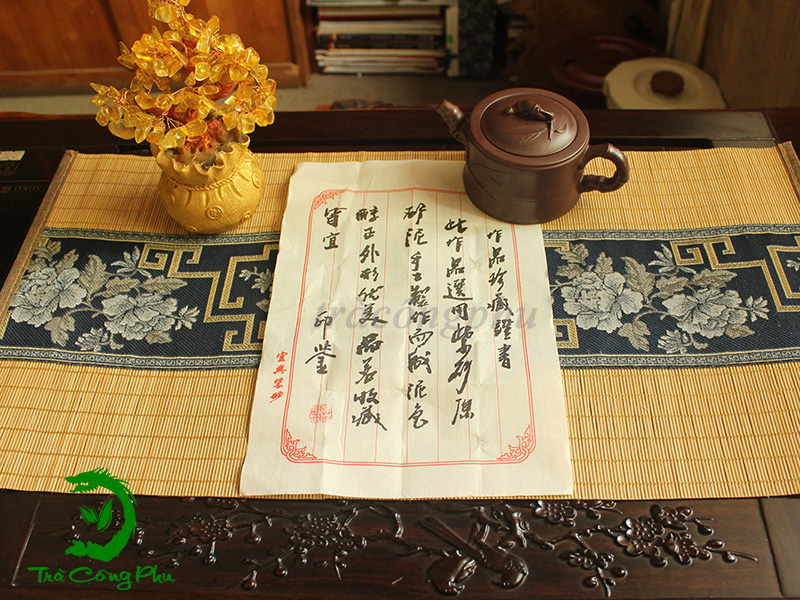 作品珍藏證書
此作品選用紫砂原
矿泥手工製作而成泥色
醇正外形优美品茗收藏
皆宜 印鉴
宜興紫砂
tracôngphu
Trà Công Phu